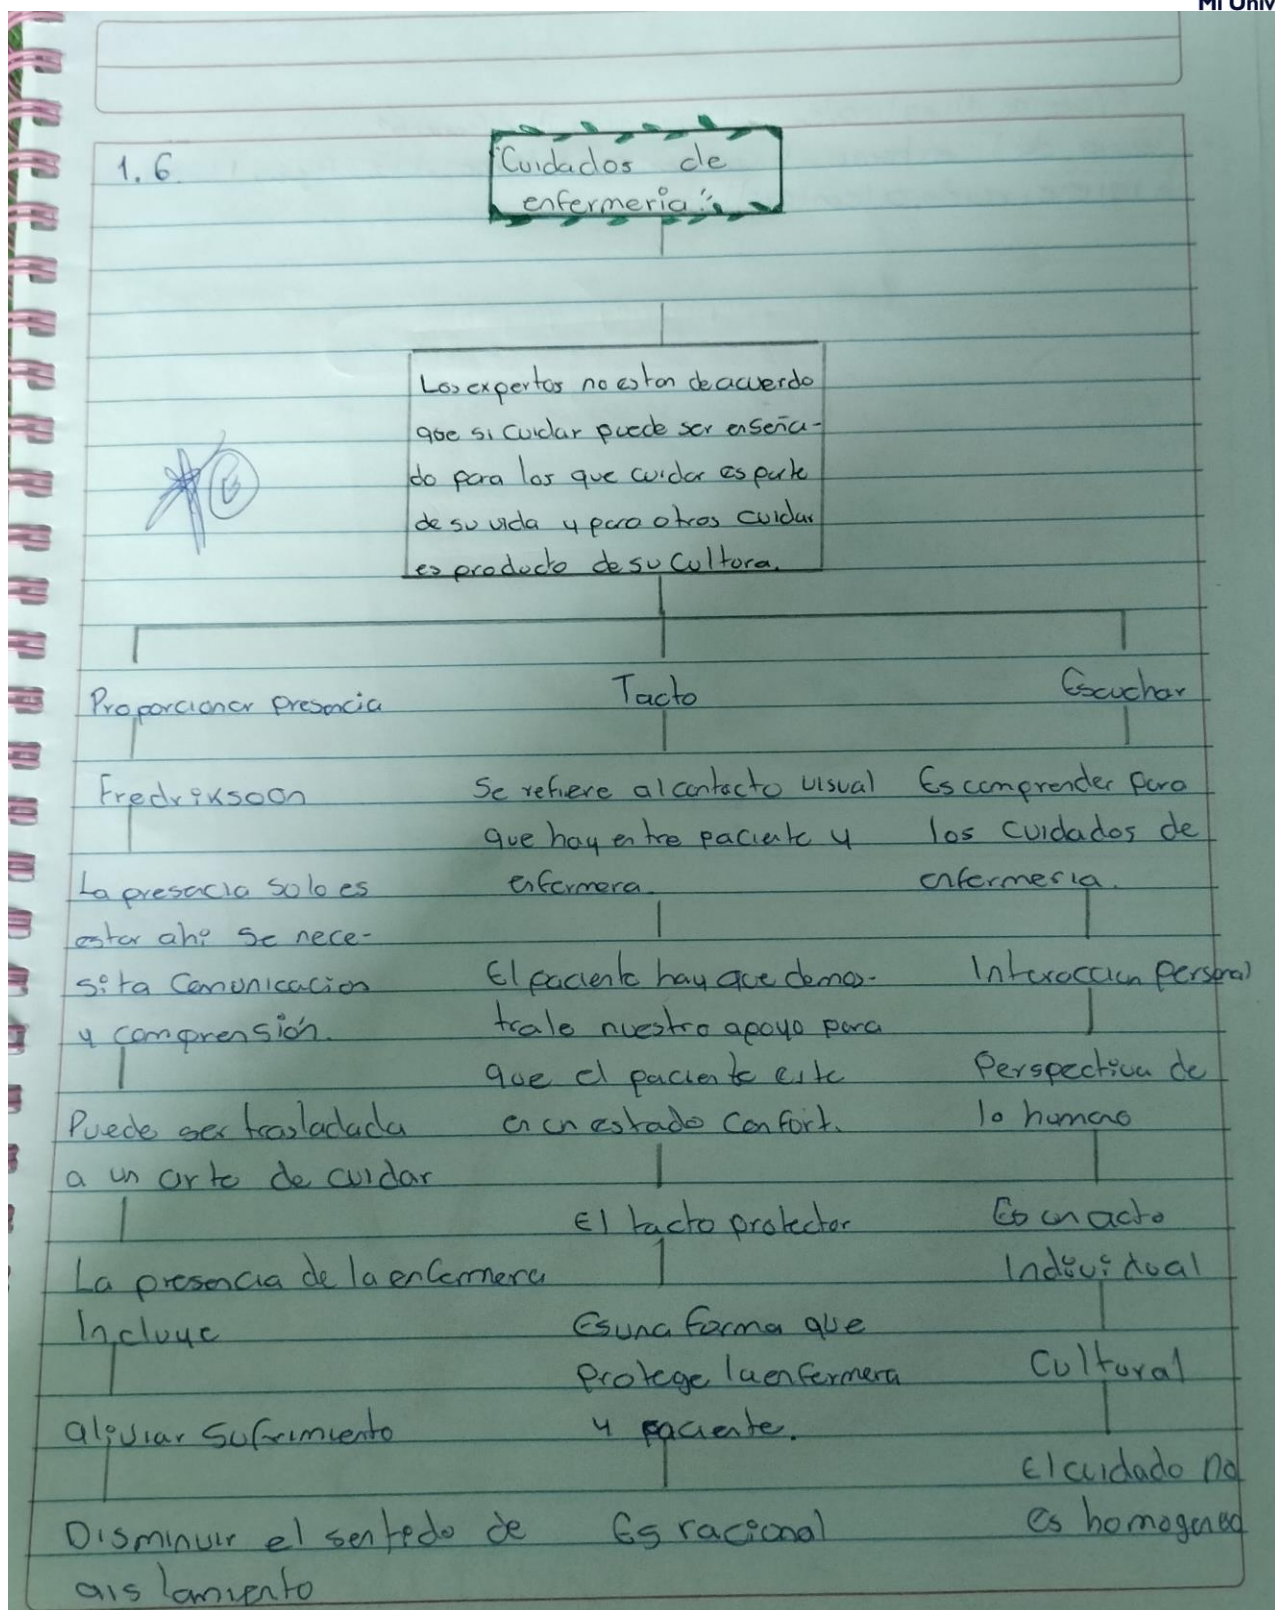 Mi Univ
1.6
"Cuidados de
enfermeria"
Los expertos no estan de acuerdo
que si cuidar puede ser enseña-
do para los que cuidar es parte
de su vida y para otros cuidar
es producto de su Cultura.
Proporcionar presencia
Fredriksoon
La presacia solo es
estar ahi se nece-
sita Comunicacion
y comprensión.
Puede ser trasladada
a un arte de cuidar
La presencia de la enfermera
Incluye
aliviar Sufrimiento
Disminuir el sentedo de
aislamiento
Tacto
Se refiere al contacto visual
que hay entre paciente y
enfermera.
El paciente hay que demos-
trale nuestro apoyo para
que el paciente este
en un estado Confort.
El tacto protector
Es una forma que
Protege la enfermera
y paciente.
Es racional
Escuchar
Es comprender para
los cuidados de
enfermeria.
Interaccion Personal
Perspectiva de
lo humano
Es un acto
Individual
Cultural
El cuidado no
es homogeneo